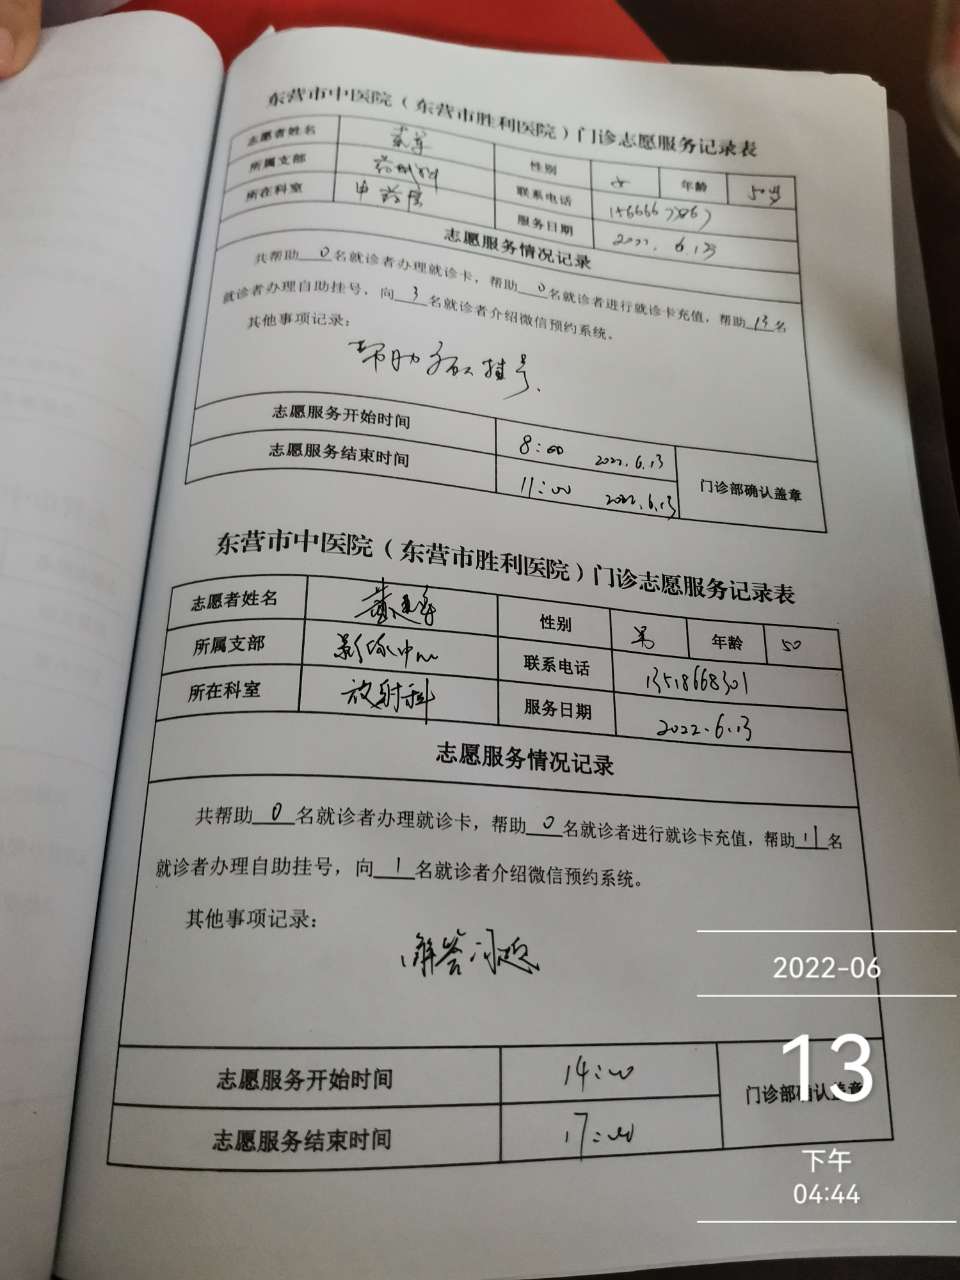 东营市中医院（东营市胜利医院）门诊志愿服务记录表
志愿者姓名 性别 女 年龄 50岁
所属支部 药剂科 联系电话
所在科室 中药房 服务日期 2022.6.13
志愿服务情况记录
共帮助0名就诊者办理就诊卡，帮助0名就诊者进行就诊卡充值，帮助13名
就诊者办理自助挂号，向3名就诊者介绍微信预约系统。
其他事项记录：
帮助 挂号.
志愿服务开始时间 8:00 2022.6.13
志愿服务结束时间 11:00 2022.6.13 门诊部确认盖章
东营市中医院（东营市胜利医院）门诊志愿服务记录表
志愿者姓名 性别 男 年龄 50
所属支部 影像中心 联系电话 13518668301
所在科室 放射科 服务日期 2022.6.13
志愿服务情况记录
共帮助0名就诊者办理就诊卡，帮助0名就诊者进行就诊卡充值，帮助11名
就诊者办理自助挂号，向1名就诊者介绍微信预约系统。
其他事项记录：
解答问题
志愿服务开始时间 14:00 门诊部确认盖章
志愿服务结束时间 17:00
2022-06
13
下午
04:44